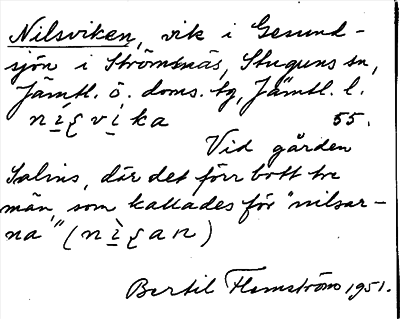 Nilsviken, vik i Gesund-
sjön i Strömsnäs, Stuguns sn,
Jämtl. ö. doms. tg, Jämtl. l.
nìʃvìka 55.
Vid gården
Salins, där det förr bott tre
män, som kallades för "nilsar-
na" (nìʃan)
Bertil Flemström 1951.